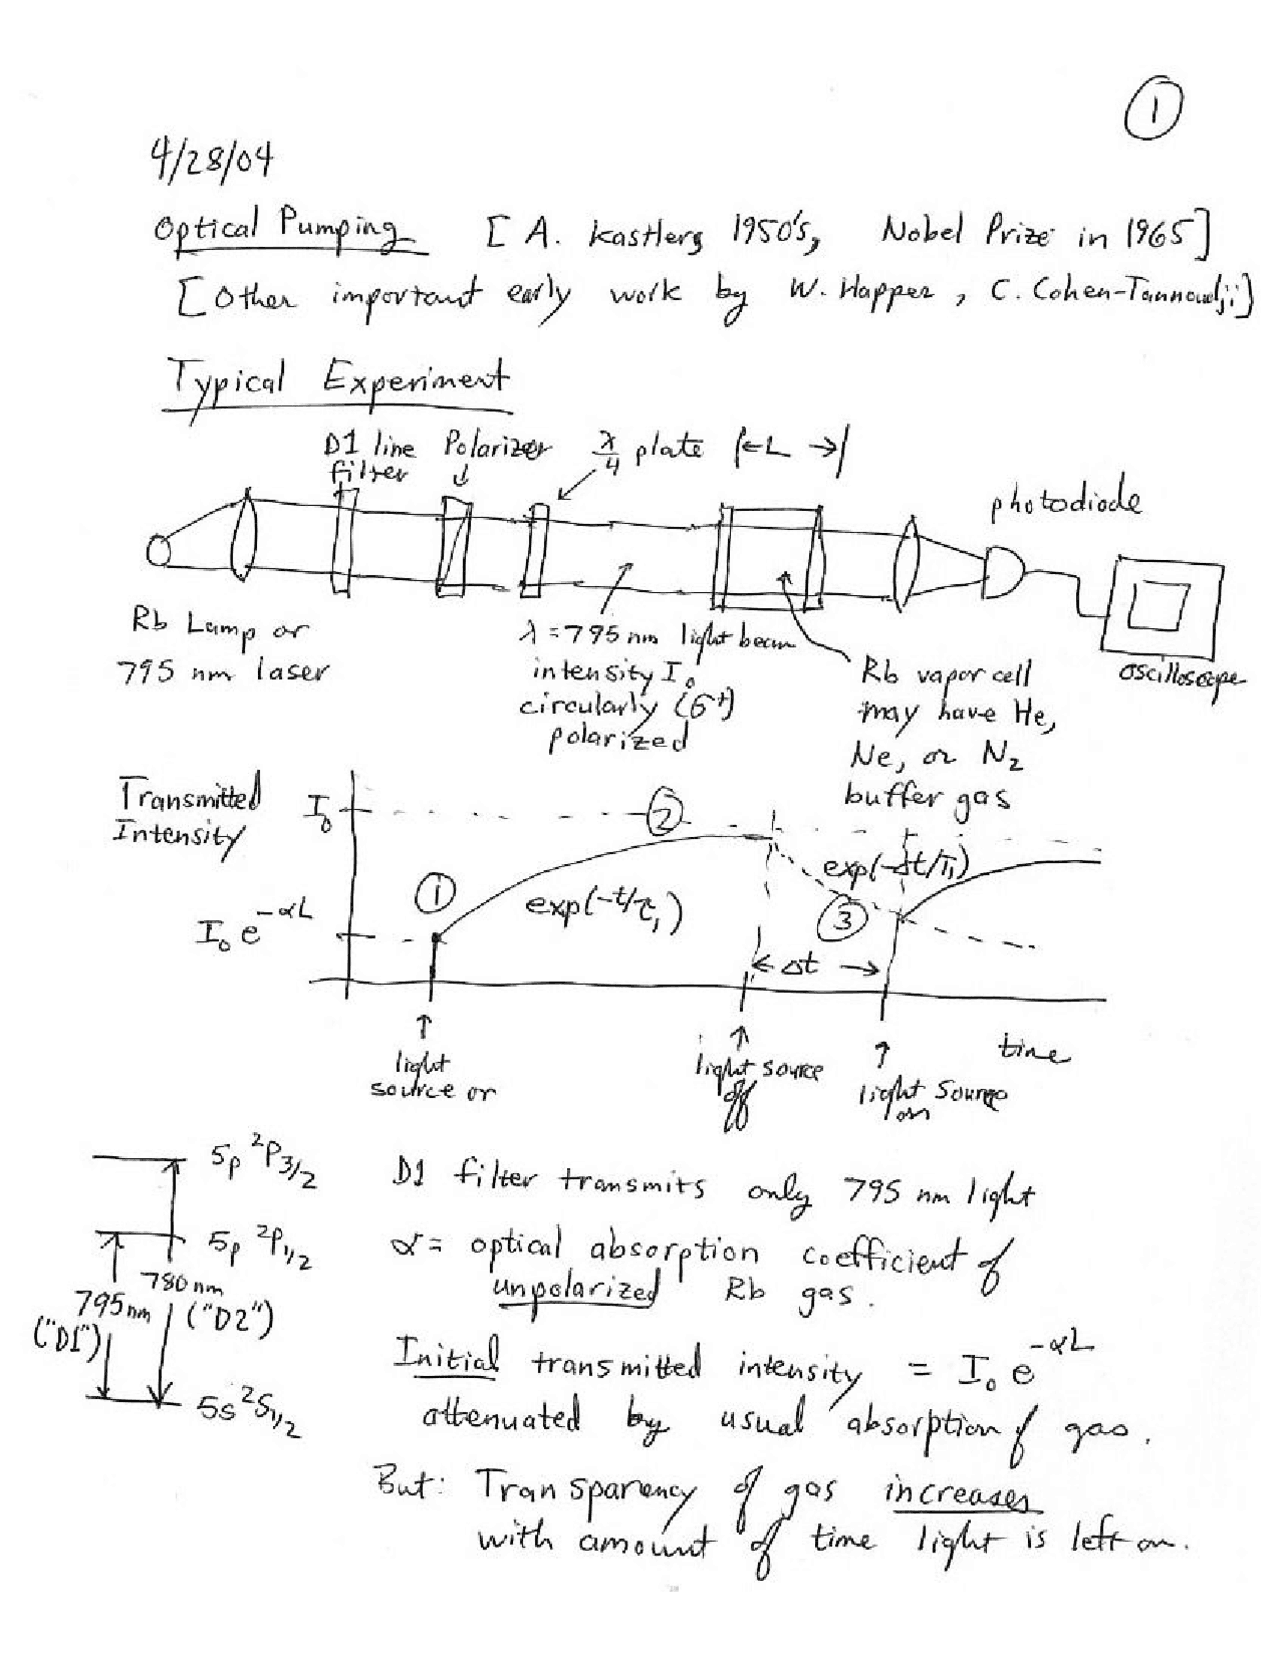 ①
4/28/04
Optical Pumping [A. Kastlerg 1950's, Nobel Prize in 1965]
[Other important early work by W. Happer, C. Cohen-Tannoudji]
Typical Experiment
D1 line filter
Polarizer
λ/4 plate
|← L →|
photodiode
Rb Lamp or
795 nm laser
λ = 795 nm light beam
intensity I₀
circularly (σ⁺)
polarized
Rb vapor cell
may have He,
Ne, or N₂
buffer gas
oscilloscope
Transmitted
Intensity
I₀
②
exp(-Δt/T₁)
①
exp(-t/τ₁)
③
I₀ e^{-αL}
← Δt →
light
source on
light source
off
light source
on
time
5p ²P₃/₂
5p ²P₁/₂
780 nm
("D2")
795 nm
("D1")
5s ²S₁/₂
D1 filter transmits only 795 nm light
α = optical absorption coefficient of
unpolarized Rb gas.
Initial transmitted intensity = I₀ e^{-αL}
attenuated by usual absorption of gas.
But: Transparency of gas increases
with amount of time light is left on.